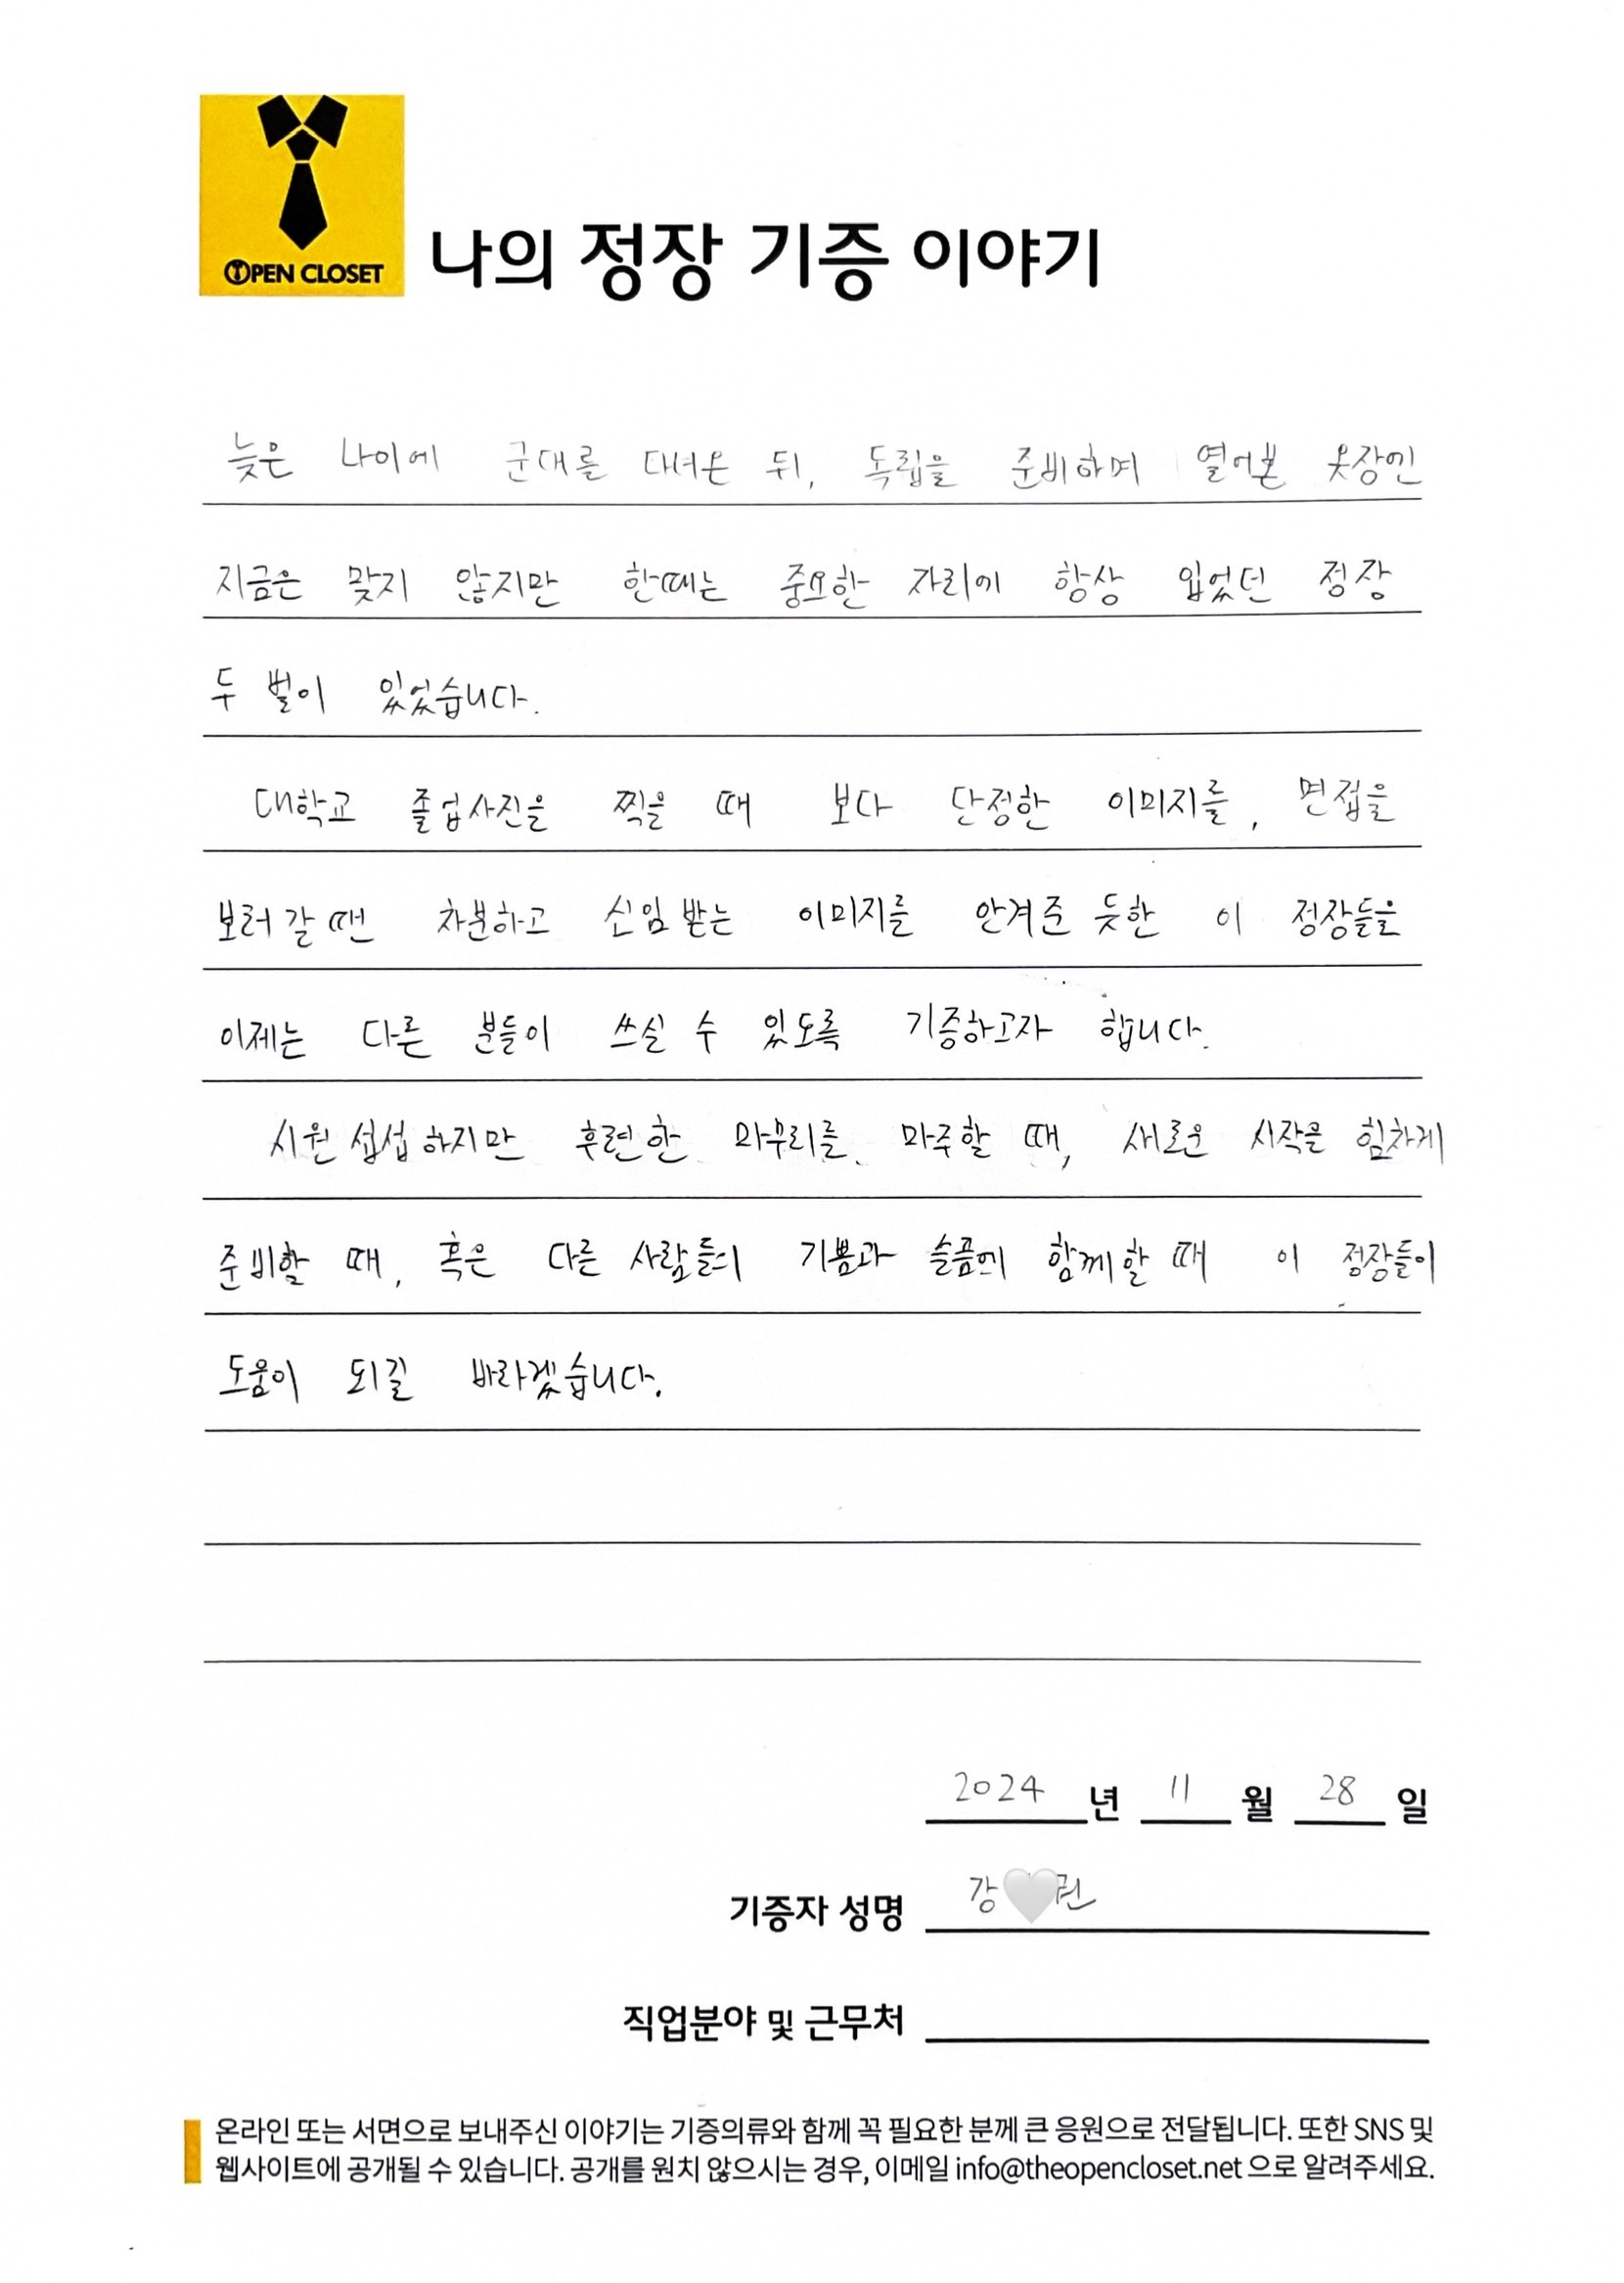 OPEN CLOSET
나의 정장 기증 이야기
늦은 나이에 군대를 다녀온 뒤, 독립을 준비하며 열어본 옷장엔
지금은 맞지 않지만 한때는 중요한 자리에 항상 입었던 정장
두 벌이 있었습니다.
대학교 졸업사진을 찍을 때 보다 단정한 이미지를, 면접을
보러 갈 땐 차분하고 신임 받는 이미지를 안겨준 듯한 이 정장들을
이제는 다른 분들이 쓰실 수 있도록 기증하고자 합니다.
시원 섭섭 하지만 후련한 마무리를 마주할 때, 새로운 시작을 힘차게
준비할 때, 혹은 다른 사람들의 기쁨과 슬픔에 함께할 때 이 정장들이
도움이 되길 바라겠습니다.
2024 년 11 월 28 일
기증자 성명 강 🤍
직업분야 및 근무처
온라인 또는 서면으로 보내주신 이야기는 기증의류와 함께 꼭 필요한 분께 큰 응원으로 전달됩니다. 또한 SNS 및
웹사이트에 공개될 수 있습니다. 공개를 원치 않으시는 경우, 이메일 info@theopencloset.net 으로 알려주세요.